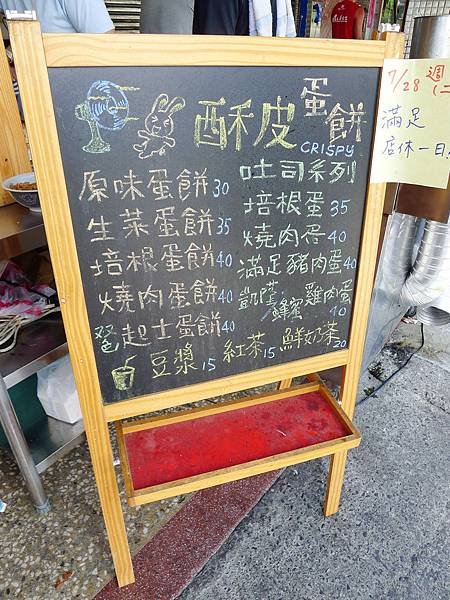 酥皮蛋餅
CRISPY
原味蛋餅30
生菜蛋餅35
培根蛋餅40
燒肉蛋餅40
雙色起士蛋餅40
吐司系列
培根蛋35
燒肉蛋40
滿足豬肉蛋40
凱薩/蜂蜜雞肉蛋40
豆漿15 紅茶15 鮮奶茶20
7/28週(二
滿足
店休一日